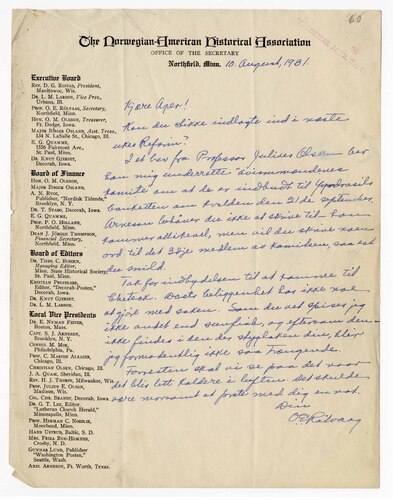 60
The Norwegian-American Historical Association
OFFICE OF THE SECRETARY
Northfield, Minn. 10. August, 1931.
Executive Board
REV. D. G. RISTAD, President,
Manitowoc, Wis.
DR. L. M. LARSON, Vice Pres.,
Urbana, Ill.
PROF. O. E. RÖLVAAG, Secretary,
Northfield, Minn.
HON. O. M. OLESON, Treasurer,
Ft. Dodge, Iowa.
MAJOR BIRGER OSLAND, Asst. Treas.,
134 N. LaSalle St., Chicago, Ill.
E. G. QUAMME,
St. Paul, Minn.
DR. KNUT GJERSET,
Decorah, Iowa.
Board of Finance
HON. O. M. OLESON,
MAJOR BIRGER OSLAND,
A. N. RYGG,
Publisher, "Nordisk Tidende,"
Brooklyn, N. Y.
DR. T. STABO, Decorah, Iowa.
E. G. QUAMME,
PROF. P. O. HOLLAND,
Northfield, Minn.
DEAN J. JÖRGEN THOMPSON,
Financial Secretary,
Northfield, Minn.
Board of Editors
DR. THEO. C. BLEGEN,
Managing Editor,
Minn. State Historical Society,
St. Paul, Minn.
KRISTIAN PRESTGARD,
Editor, "Decorah-Posten,"
Decorah, Iowa.
DR. KNUT GJERSET,
DR. L. M. LARSON.
Local Vice Presidents
Boston, Mass.
CAPT. S. J. ARNESEN,
Brooklyn, N. Y.
Philadelphia, Pa.
Chicago, Ill.
CHRISTIAN OLSEN, Chicago, Ill.
REV. H. J. THORPE, Milwaukee, Wis.
PROF. JULIUS E. OLSON,
Madison, Wis.
COL. CHR. BRANDT, Decorah, Iowa.
DR. G. T. LEE, Editor,
"Lutheran Church Herald,"
Minneapolis, Minn.
Moorhead, Minn.
HANS USTRUD, Baltic, S. D.
Crosby, N. D.
GUNNAR LUND, Publisher
"Washington Posten,"
Seattle, Wash.
AXEL ARNESON, Ft. Worth, Texas.
Kjære Ager!
Kan du ikke indtage i næste
ukes Reform?
Et brev fra Professor Julius Olson ber
han mig underrette
komite om at de er indbudt til Yggdrasils
banketten om kvelden den 21de september.
Arneson behøver du ikke at skrive til; han
kommer allikevel, men vil du skrive noen
ord til det 3dje medlem av komiteen, saa er
du snild.
Tak for indbydelsen til at komme til
Chetek. Dasts beliggenhet har ikke noe
at gjøre med saken. Som du vet spiser jeg
ikke andet end sunfisk, og eftersom den
ikke findes i den der dan, blir
jeg formodentlig ikke saa trængende.
Forresten skal vi se paa det naar
det blir litt kaldere i luften. Det skulde
være morsomt at prate med dig en nat.
Din
O E Rölvaag